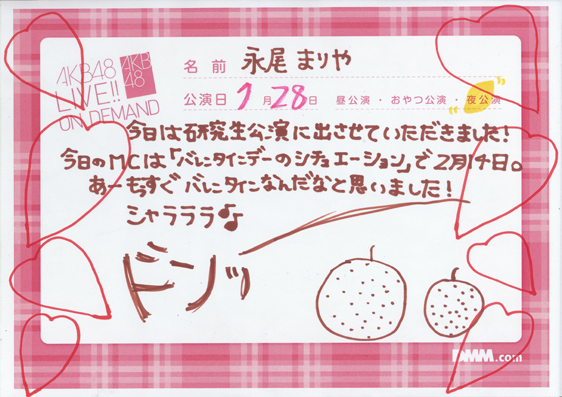 AKB48
LIVE!!
ON DEMAND
AKB
48
名前 永尾まりや
公演日 1月28日 昼公演・おやつ公演・夜公演
今日は研究生公演に出させていただきました!
今日のMCは「バレンタインデーのシチュエーション」で2月14日。
あーもうすぐバレンタインなんだなと思いました!
シャラララ♪
ドーンッ
DMM.com